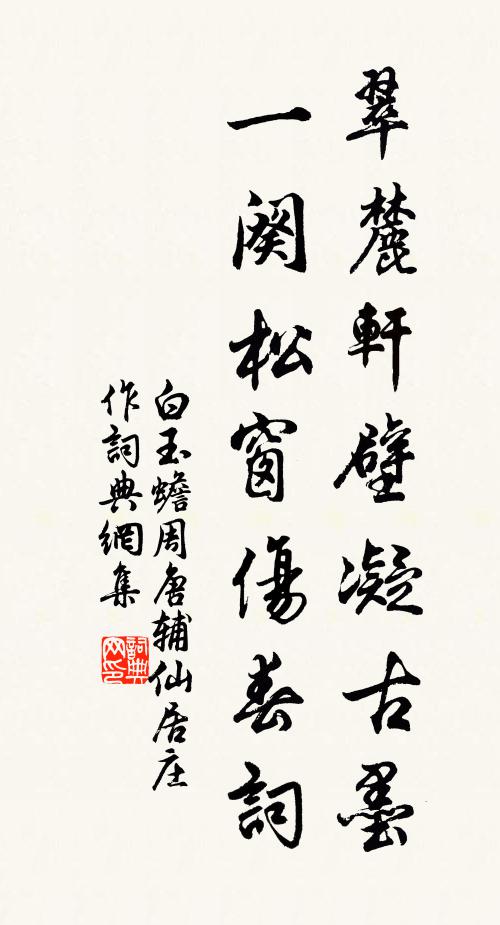 翠麓軒壁凝古墨
一闋松窗傷春詞
白玉蟾周唐辅仙居庄
作詞典網集
詞典網印